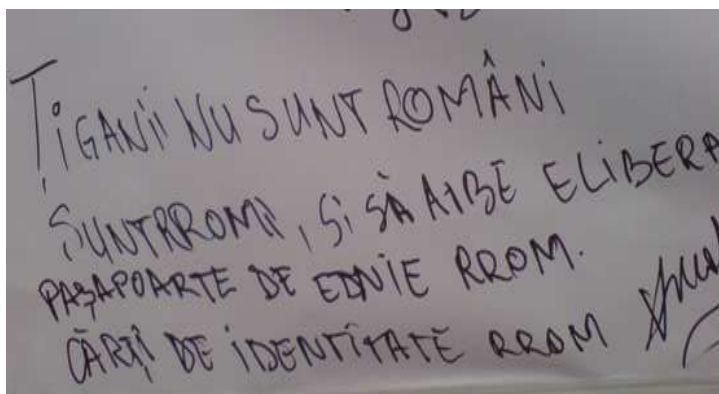 ȚIGANII NU SUNT ROMÂNI
SUNT RROMI, ȘI SĂ AIBE ELIBERA
PAȘAPOARTE DE EDNIE RROM.
CĂRȚI DE IDENTITATE RROM